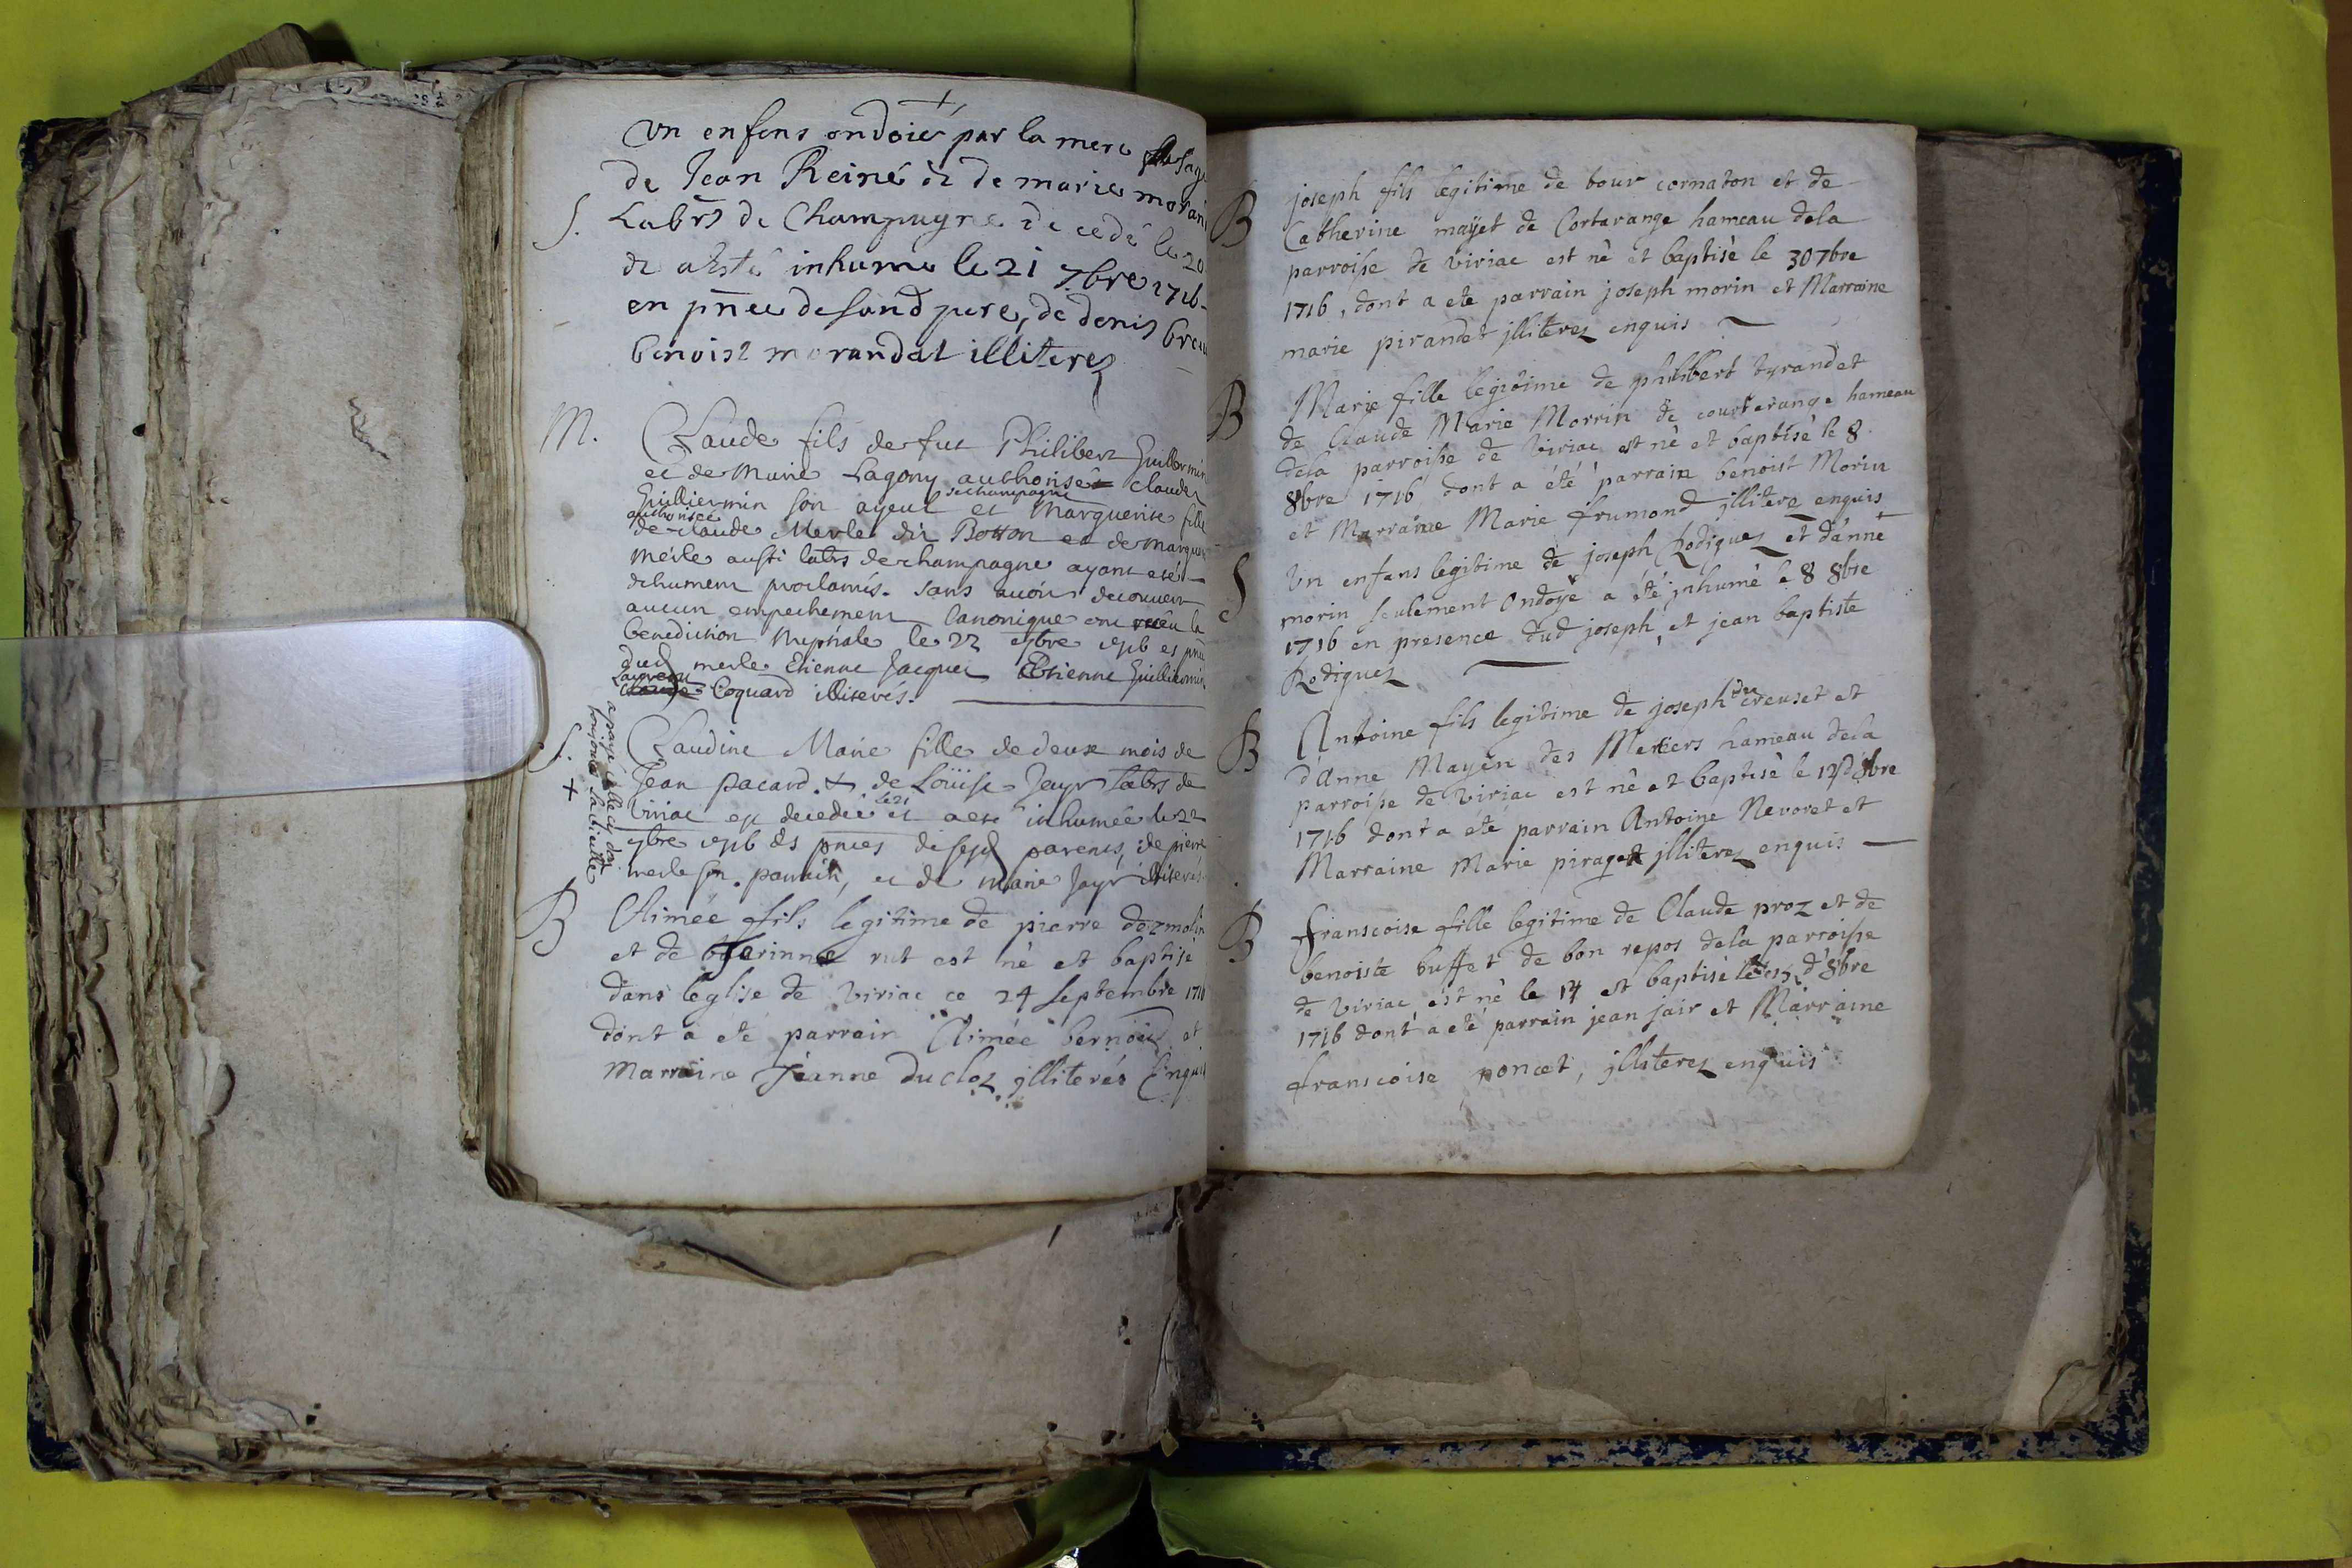 Un enfens ondoié par la mere sage
de Jean Reiné & de marie moran
S. Labrs de Champagne decedé le 20
& a esté inhumé le 21 7bre 1716
en pnce desand pere, de denis
benoist morandat illiterez
M. Claude fils de fut Philibert Guillermin
et de Marie Lagony authorisé claude
de champagne
Guilliermin son ayeul et Marguerite fille
authorisee
de claude Merle dit Botton et de Margue
Merle aussi labrs de champagne ayant etés
dehument proclamés. sans avoir decouvert
aucun empechement Canonique ont receu la
benediction Nuptiale le 22 7bre 1716 es pnce
dud merle Etienne Jacquet Etienne Guilliermin
Laurent
claude Coquard illiteres.
S. Claudine Marie fille de deux mois de
+ Jean pacard & de Loüise Jayr labrs de
le 21
Viriac est decedée et a eté inhumée le 22
7bre 1716 es pnces de sesd parents, de pierre
merle son parrain, et de Marie Jayr illiterés
B Aimée fils legitime de pierre dezmolin
et de rut est né et baptisé
dans leglise de viriac ce 24 septembre 1716
dont a eté parrain Aimée bernoud et
Marraine Jeanne Ducloz jlliterés Enquis
B joseph fils legitime de bour cornaton et de
Catherine mayet de Cortarange hameau dela
parroisse de viriac est né et baptisé le 30 7bre
1716, dont a eté parrain joseph morin et Marraine
marie pirandet jlliterez enquis
B Marie fille legitime de philibert tyrandet
de Claude Marie Morrin de courterange hameau
dela parroisse de viriac est né et baptisé le 8
8bre 1716 dont a été parrain benoist Morin
et Marraine Marie frumond jllitere enquis
S Un enfans legitime de joseph Rodiquez et d'anne
morin seulement Ondoyé a été jnhumé le 8 8bre
1716 en presence dud joseph, et jean baptiste
Rodiquez
B Antoine fils legitime de joseph du creuset et
d'Anne Mayen des Merciers hameau dela
parroisse de viriac est né et baptisé le 12 d'8bre
1716 dont a été parrain Antoine Nevoret et
Marraine Marie piraget jlliterez enquis
B franscoise fille legitime de Claude proz et de
benoiste buffet de bon repos dela parroisse
de viriac est né le 14 et baptisé le 15 d'8bre
1716 dont a eté parrain jean jair et Marraine
franscoise poncet, jlliterez enquis